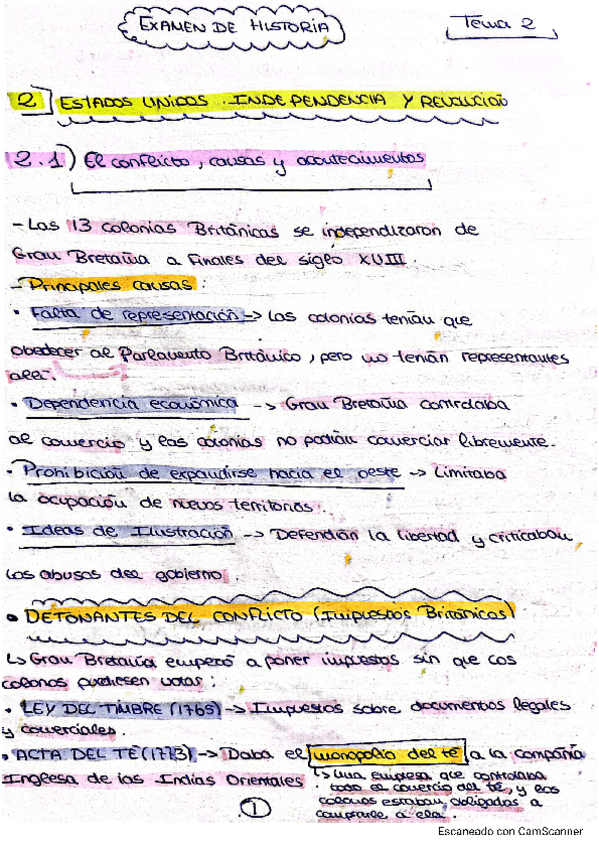 EXAMEN DE HISTORIA
Tema 2
2] ESTADOS UNIDOS. INDEPENDENCIA Y REVOLUCIÓN
2.1) El conflicto, causas y acontecimientos
- Las 13 colonias Británicas se independizaron de
Gran Bretaña a finales del siglo XVIII.
- Principales causas:
• Falta de representación -> Las colonias tenían que
obedecer al Parlamento Británico, pero no tenían representantes
allí.
• Dependencia económica -> Gran Bretaña controlaba
al comercio y las colonias no podían comerciar libremente.
• Prohibición de expandirse hacia el oeste -> Limitaba
la ocupación de nuevos territorios.
• Ideas de Ilustración -> Defendían la libertad y criticaban
los abusos del gobierno.
• DETONANTES DEL CONFLICTO (Impuestos Británicos)
↳ Gran Bretaña empezó a poner impuestos sin que los
colonos pudiesen votar:
• LEY DEL TIMBRE (1765) -> Impuestos sobre documentos legales
y comerciales.
• ACTA DEL TÉ (1773) -> Daba el monopolio del té a la compañía
Inglesa de las Indias Orientales
↳ una empresa que controlaba
todo el comercio del té, y los
colonos estaban obligados a
comprarle a ella.
1
Escaneado con CamScanner